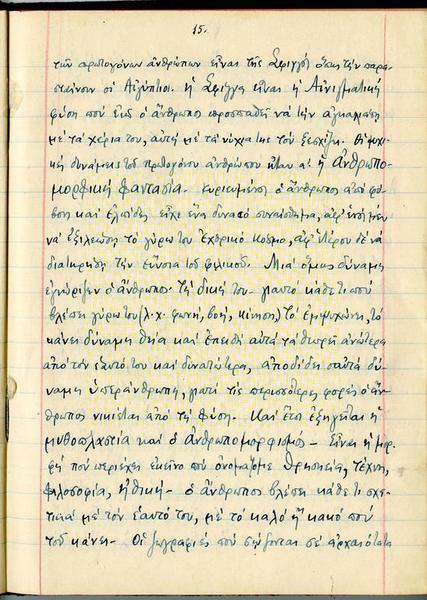 15.
τῶν πρωτογόνων ἀνθρώπων εἶναι τῆς Σφιγγός ὅπως τήν παρα-
σταίνουν οἱ Αἰγύπτιοι. ἡ Σφίγγα εἶναι ἡ Αἰνιγματική
φύση πού ἐνῶ ὁ ἄνθρωπος προσπαθεῖ νά τήν ἀγκαλιάσει
μέ τά χέρια του, αὐτή μέ τά νύχια της τόν ξεσχίζει. Οἱ ψυχι-
κές δυνάμεις τοῦ πρωτογόνου ἀνθρώπου ἦταν α' ἡ ἀνθρωπο-
μορφική φαντασία. κυριευμένος ὁ ἄνθρωπος ἀπό φό-
βους καί ἐλπίδες εἶχε ἕνα δυνατό συναίσθημα, ἀφ' ἑνός μέν
νά ἐξιλεώσῃ τό γύρω του ἐχθρικό κόσμο, ἀφ' ἑτέρου δέ νά
διατηρήσῃ τήν εὔνοια τοῦ φιλικοῦ. Μιά ὅμως δύναμη
ἐγνώριζεν ὁ ἄνθρωπος. τή δική του - γιαυτό κάθε τι πού
βλέπει γύρω του (λ.χ. φωνή, βοή, κίνηση) τό ἐμψυχώνει, τό
κάνει δύναμη θεία καί ἐπειδή αὐτά τά θωρεῖ ἀνώτερα
ἀπό τόν ἑαυτό του καί δυνατώτερα, ἀποδίδει σ' αὐτά δύ-
ναμη ὑπεράνθρωπη, γιατί τίς περισσότερες φορές ὁ ἄν-
θρωπος νικιέται ἀπό τή φύση. Καί ἔτσι ἐξηγεῖται ἡ
μυθοπλαστία καί ὁ ἀνθρωπομορφισμός - Εἶναι ἡ μορ-
φή πού περιέχει ἐκεῖνο πού ὀνομάζομε θρησκεία, τέχνη,
φιλοσοφία, ἠθική - ὁ ἄνθρωπος βλέπει κάθε τι σχε-
τικά μέ τόν ἑαυτό του, μέ τό καλό ἤ κακό πού
τοῦ κάνει - Οἱ ζωγραφιές πού σῴζονται σέ ἀρχαιότατα